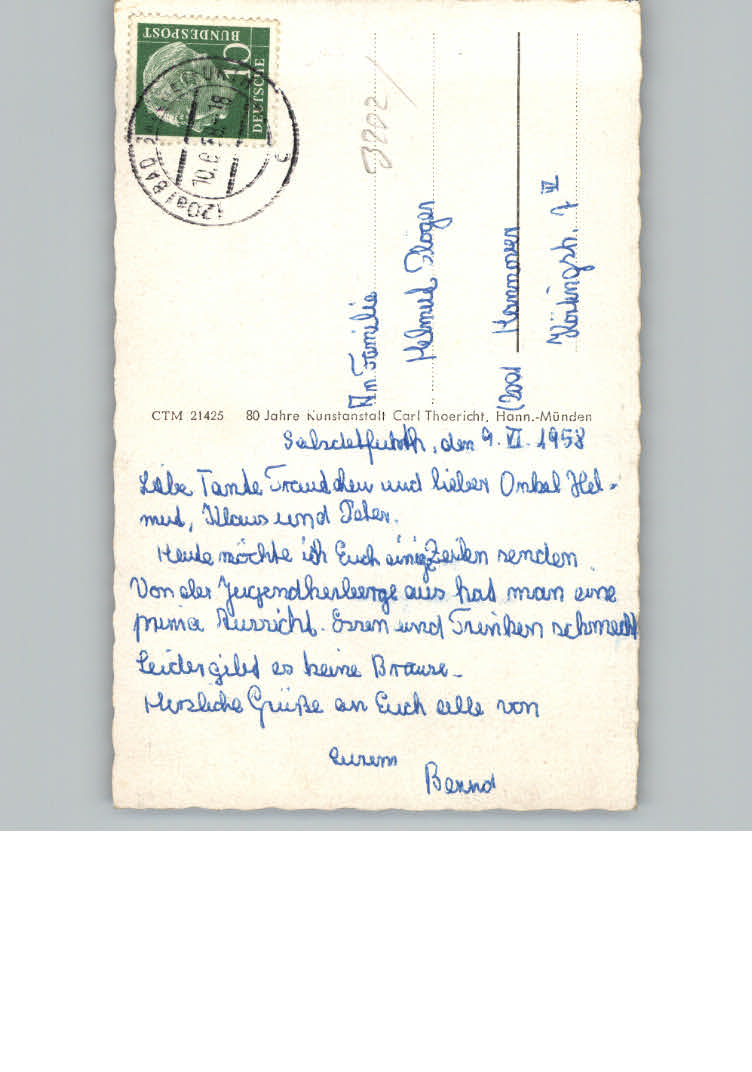 DEUTSCHE
BUNDESPOST
10
(20a) BAD
10.6.58.-18
c
3202/
An Familie
Helmut Plöger
(20a) Hannover
7 IV
CTM 21425 80 Jahre Kunstanstalt Carl Thoericht, Hann.-Münden
Salzdetfurth, den 9. VI. 1958
Liebe Tante Traudchen und lieber Onkel Hel-
mut, Klaus und Peter.
Heute möchte ich Euch einige Zeilen senden.
Von der Jugendherberge aus hat man eine
prima Aussicht. Essen und Trinken schmeckt
Leider gibt es keine Brause.
Herzliche Grüße an Euch alle von
eurem
Bernd